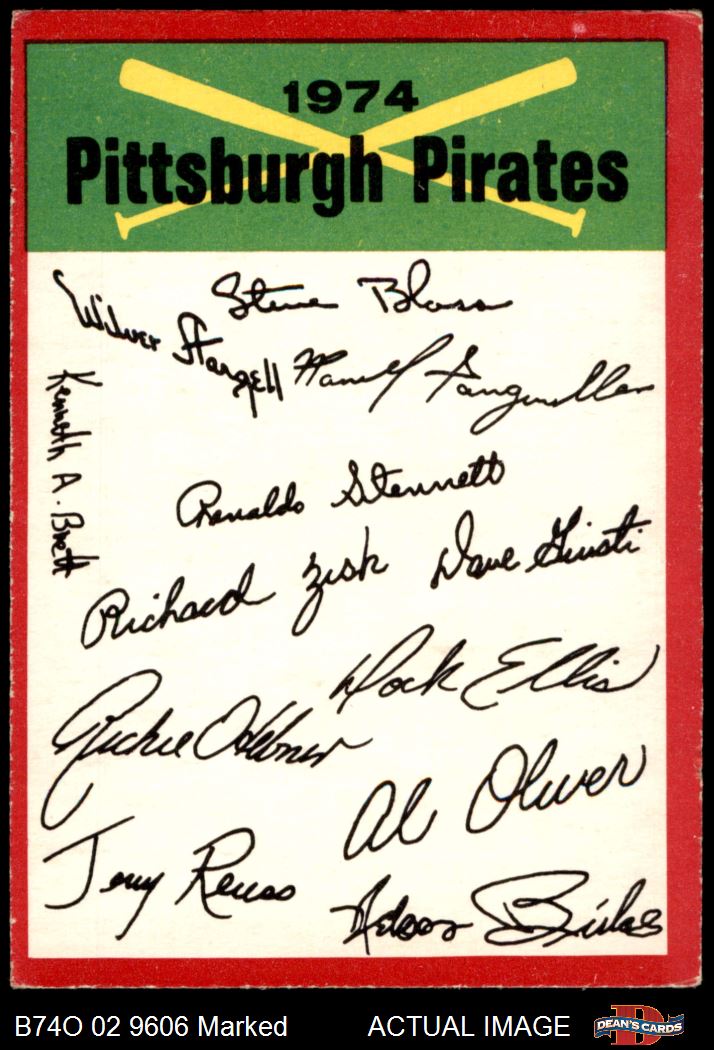 1974
Pittsburgh Pirates
Steve Blass
Wilver Stargell
Manuel Sanguillen
Kenneth A. Brett
Renaldo Stennett
Richard Zisk
Dave Giusti
Dock Ellis
Richie Hebner
Al Oliver
Jerry Reuss
B74O 02 9606 Marked
ACTUAL IMAGE
D
DEAN'S CARDS